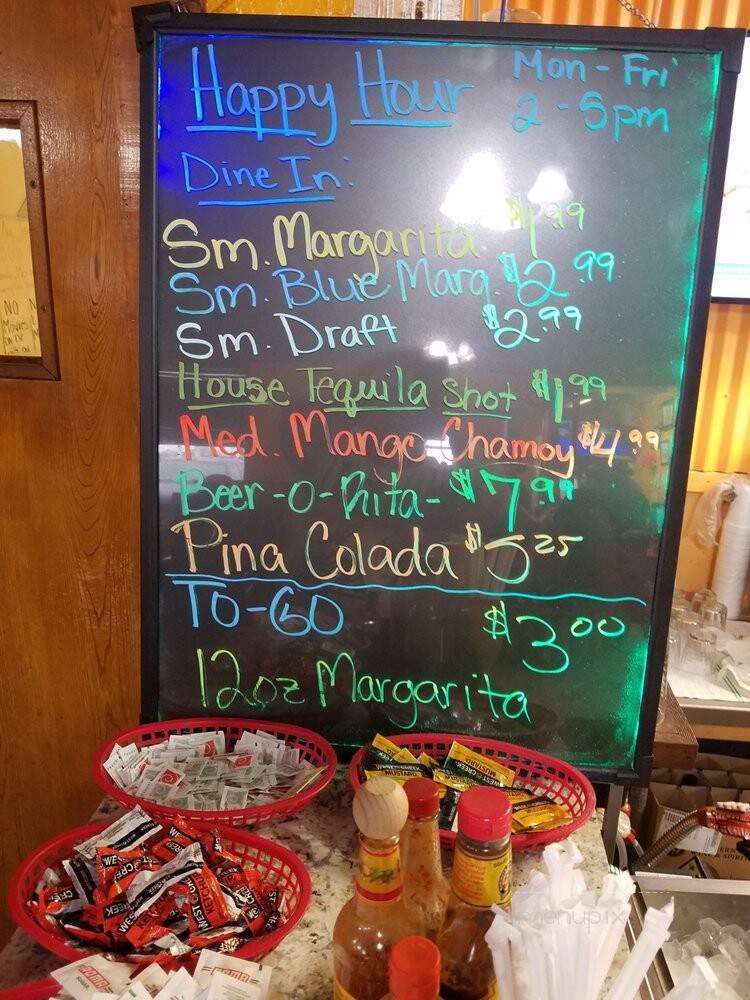 Happy Hour Mon - Fri
2 - 5pm
Dine In:
Sm. Margarita $1.99
Sm. Blue Marg. $2.99
Sm. Draft $2.99
House Tequila Shot $1.99
Med. Mango Chamoy $4.99
Beer-O-Rita- $7.99
Pina Colada $5.25
TO-GO $3.00
12oz Margarita
NO
Movies
MUSTARD
WEST CREEK
KETCHUP